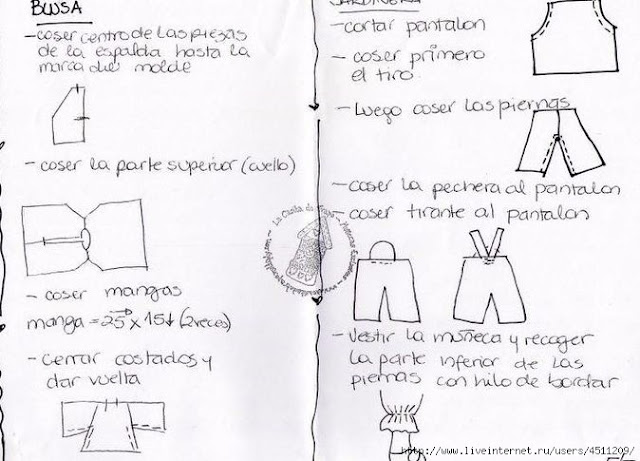 BLUSA
-coser centro de las piezas
de la espalda hasta la
marca del molde
- coser la parte superior (cuello)
- coser mangas
manga = 25 x 15↓ (2 veces)
- cerrar costados y
dar vuelta
JARDINERA
- cortar pantalon
- coser primero
el tiro
- Luego coser las piernas
-coser la pechera al pantalon
- coser tirante al pantalon
- vestir la muñeca y recoger
la parte inferior de las
piernas con hilo de bordar
http://www.liveinternet.ru/users/4511209/